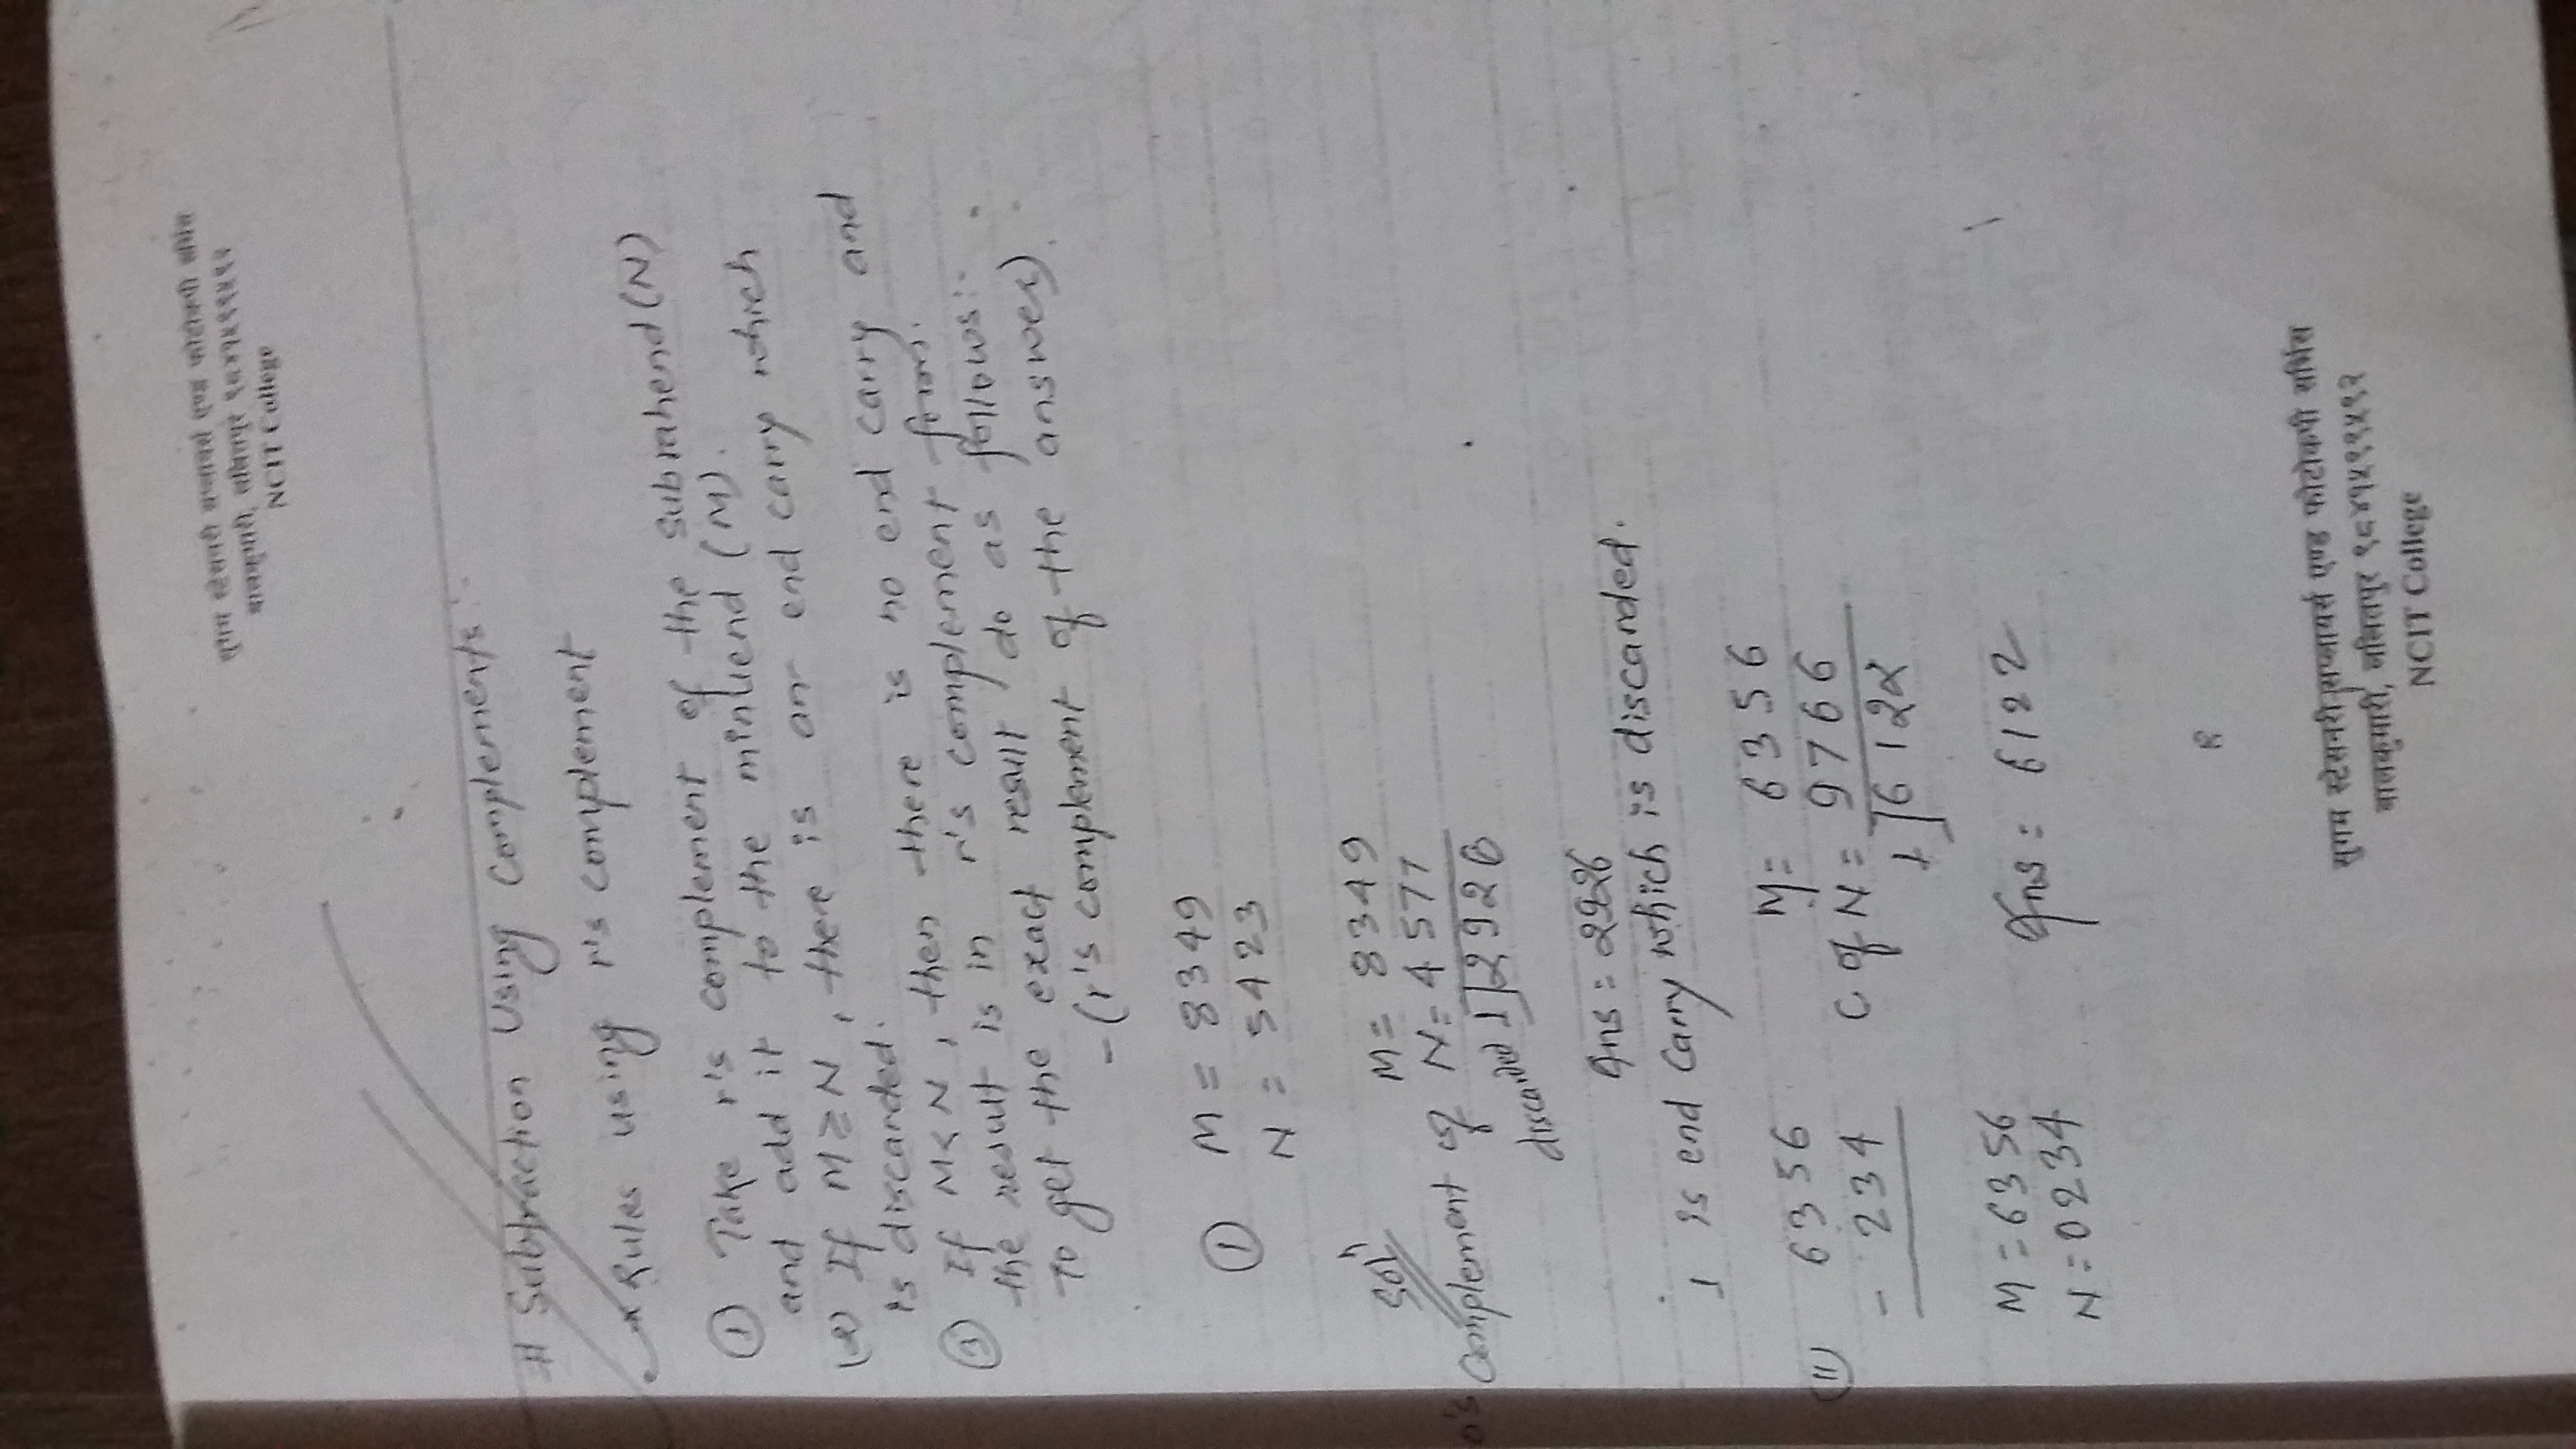 सुगम स्टेसनरी सप्लायर्स एण्ड फोटोकपी सर्भिस
बालकुमारी, ललितपुर ९८४१५९९५९२
NCIT College
# Subtraction Using Complements:-
* Rules using r's complement
① Take r's complement of the subrahend (N)
and add it to the minuend (M).
(2) If M ≥ N, there is an end carry which
is discarded.
③ If M < N, then there is no end carry and
the result is in r's complement form.
To get the exact result do as follows:-
- (r's complement of the answer).
① M = 8349
N = 5423
Solⁿ
M = 8349
0's Complement of N = 4577
discarded 1 2926
Ans = 2926
1 is end carry which is discarded.
(11) 6356
- 234
M = 6356
C of N = 9766
1 6122
M = 6356
N = 0234
Ans = 6122
सुगम स्टेसनरी सप्लायर्स एण्ड फोटोकपी सर्भिस
बालकुमारी, ललितपुर ९८४१५९९५९२
NCIT College